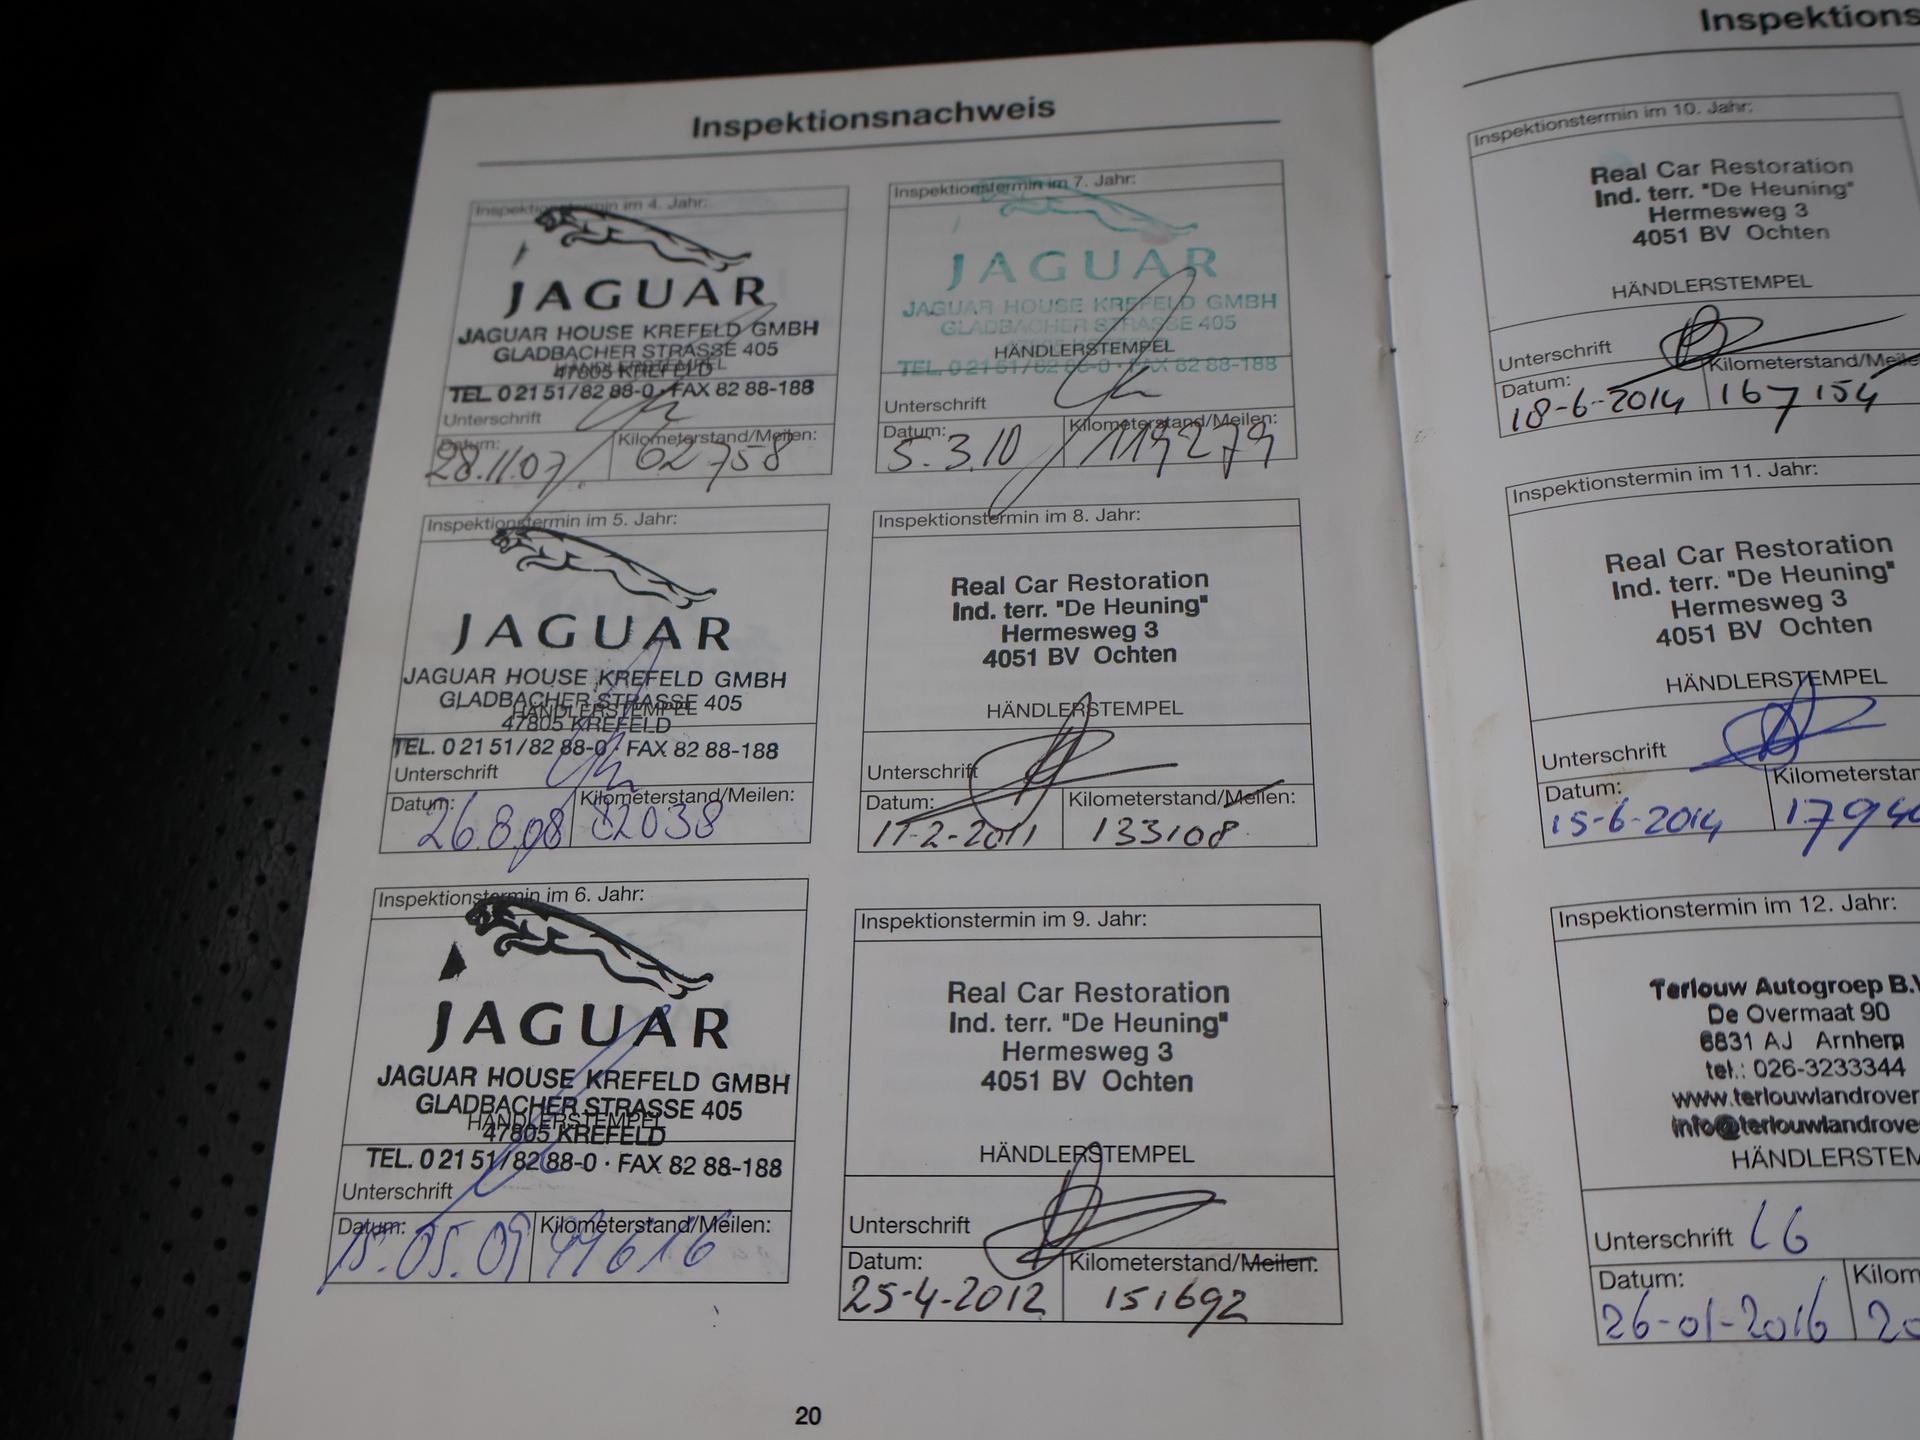 Inspektionsnachweis
Inspektionstermin im 4. Jahr:
JAGUAR
JAGUAR HOUSE KREFELD GMBH
GLADBACHER STRASSE 405
HÄNDLERSTEMPEL
47805 KREFELD
TEL. 0 21 51/82 88-0 · FAX 82 88-188
Unterschrift
Datum: Kilometerstand/Meilen:
28.11.07 62758
Inspektionstermin im 5. Jahr:
JAGUAR
JAGUAR HOUSE KREFELD GMBH
GLADBACHER STRASSE 405
HÄNDLERSTEMPEL
47805 KREFELD
TEL. 0 21 51/82 88-0 · FAX 82 88-188
Unterschrift
Datum: Kilometerstand/Meilen:
26.8.08 82038
Inspektionstermin im 6. Jahr:
JAGUAR
JAGUAR HOUSE KREFELD GMBH
GLADBACHER STRASSE 405
HÄNDLERSTEMPEL
47805 KREFELD
TEL. 0 21 51/82 88-0 · FAX 82 88-188
Unterschrift
Datum: Kilometerstand/Meilen:
15.05.09 99616
Inspektionstermin im 7. Jahr:
JAGUAR
JAGUAR HOUSE KREFELD GMBH
GLADBACHER STRASSE 405
HÄNDLERSTEMPEL
TEL. 0 21 51/82 88-0 · FAX 82 88-188
Unterschrift
Datum: Kilometerstand/Meilen:
5.3.10 119279
Inspektionstermin im 8. Jahr:
Real Car Restoration
Ind. terr. "De Heuning"
Hermesweg 3
4051 BV Ochten
HÄNDLERSTEMPEL
Unterschrift
Datum: Kilometerstand/Meilen:
11-2-2011 133108
Inspektionstermin im 9. Jahr:
Real Car Restoration
Ind. terr. "De Heuning"
Hermesweg 3
4051 BV Ochten
HÄNDLERSTEMPEL
Unterschrift
Datum: Kilometerstand/Meilen:
25-4-2012 151692
20
Inspektions
Inspektionstermin im 10. Jahr:
Real Car Restoration
Ind. terr. "De Heuning"
Hermesweg 3
4051 BV Ochten
HÄNDLERSTEMPEL
Unterschrift
Datum: Kilometerstand/Meile
18-6-2014 167154
Inspektionstermin im 11. Jahr:
Real Car Restoration
Ind. terr. "De Heuning"
Hermesweg 3
4051 BV Ochten
HÄNDLERSTEMPEL
Unterschrift
Datum: Kilometerstan
15-6-2014 1794
Inspektionstermin im 12. Jahr:
Terlouw Autogroep B.V
De Overmaat 90
6831 AJ Arnhem
tel.: 026-3233344
www.terlouwlandrover
info@terlouwlandrove
HÄNDLERSTEM
Unterschrift LG
Datum: Kilom
26-01-2016 20